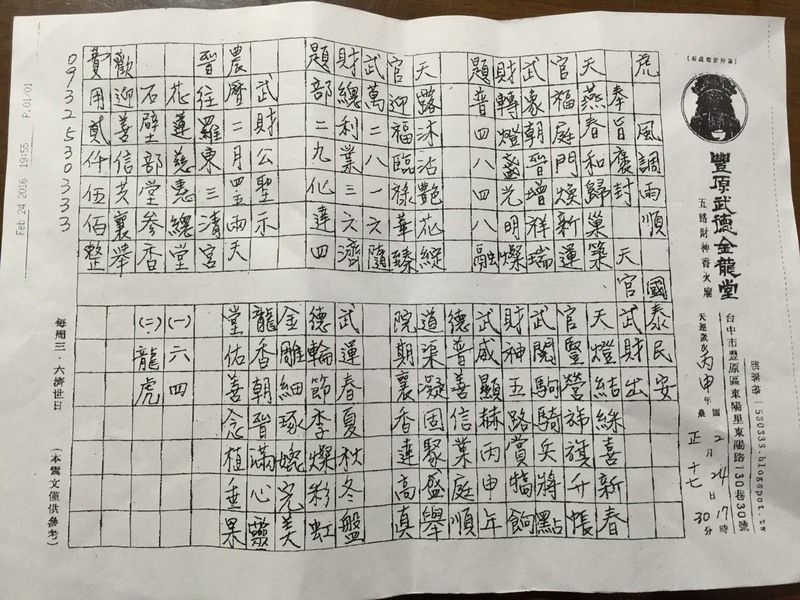 虎 風調雨順 國泰民安
奉旨褒封 天官武財出
天燕春和歸巢築
官福庭門煥新運
武象朝晉增祥瑞
財轉燈盞光明燦
題普四八四八融
天露沐沾艷花綻
官迎福臨祿華臻
武萬二八一六隨
財總利業三六濟
題部二九化達四
武財公聖示
農曆二月
晉往羅東三清宮
花蓮慈惠總堂
石壁部堂參香
歡迎善信共襄舉
費用貳仟伍佰整
0932530333
天燈結綵喜新春
官豎營旆旗升帳
武閱駒騎兵將點
財神五路賞犒餉
武威顯赫丙申年
德普善信業庭順
道渠凝固聚盛舉
院期襄香達高真
武運春夏秋冬盤
德輪節季燦彩虹
金雕細琢燦完美
龍香朝晉滿心靈
堂佑善念植垂果
(一)六四
(二)龍虎
豐原武德金龍堂
五路財神香火廟
台中市豐原區東陽里東陽路130巷30號
天運歲次丙申年 國2月24日17時
農正十七 30分
每周三．六濟世日
(本鸞文僅供參考)
Feb 24 2016 19:55 P.01/01